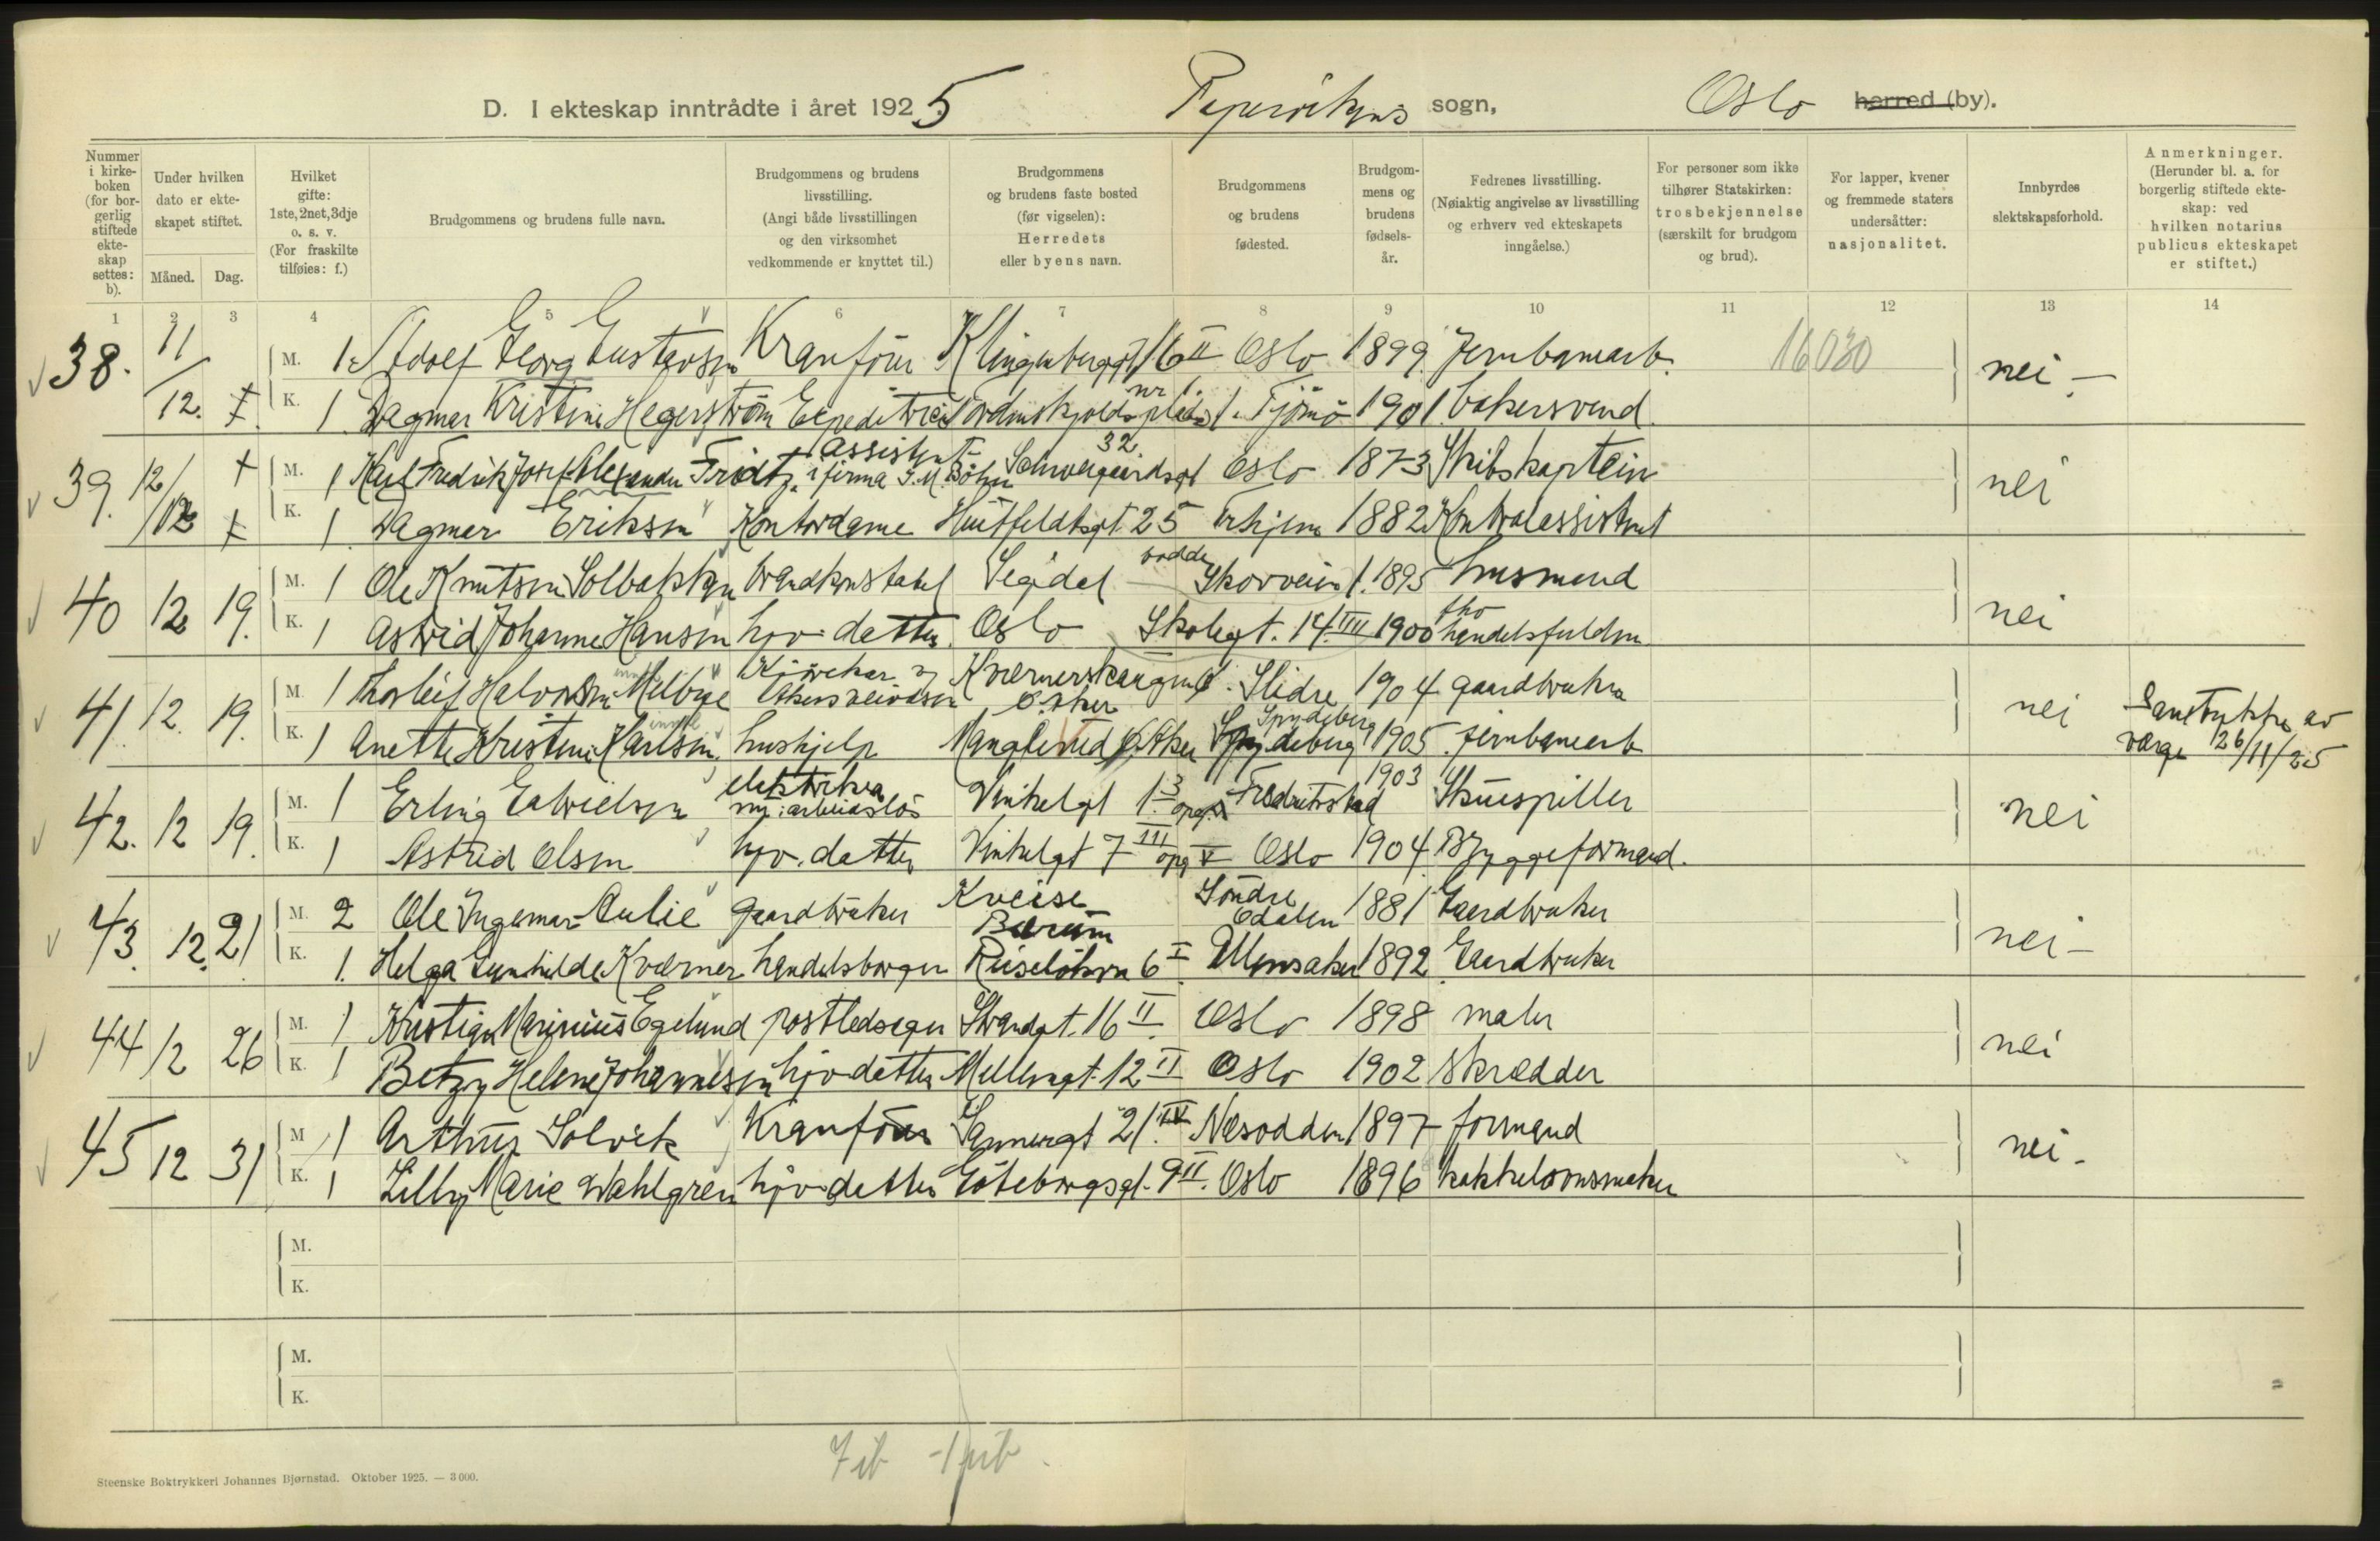 D. I ekteskap inntrådte i året 1925 Pipervikens sogn, Oslo herred (by).
Nummer i kirkeboken (for borgerlig stiftede ekteskap settes: b).
Under hvilken dato er ekteskapet stiftet.
Måned. Dag.
Hvilket gifte: 1ste, 2net, 3dje o. s. v. (For fraskilte tilføies: f.)
Brudgommens og brudens fulle navn.
Brudgommens og brudens livsstilling. (Angi både livsstillingen og den virksomhet vedkommende er knyttet til.)
Brudgommens og brudens faste bosted (før vigselen): Herredets eller byens navn.
Brudgommens og brudens fødested.
Brudgommens og brudens fødselsår.
Fedrenes livsstilling. (Nøiaktig angivelse av livsstilling og erhverv ved ekteskapets inngåelse.)
For personer som ikke tilhører Statskirken: trosbekjennelse (særskilt for brudgom og brud).
For lapper, kvener og fremmede staters undersåtter: nasjonalitet.
Innbyrdes slektskapsforhold.
Anmerkninger. (Herunder bl. a. for borgerlig stiftede ekteskap: ved hvilken notarius publicus ekteskapet er stiftet.)
1 2 3 4 5 6 7 8 9 10 11 12 13 14
38. 11/ M. 1. Adolf Georg Gustavsen Kranför Klingenberggt 16 II Oslo 1899 Jernbanearb. 16030 nei -
12. K. 1 Dagmar Kristine Hegerström Expeditrice Tordenskjolds plads nr 1. Tjømø 1901 bakersvend
39. 12/ M. 1 Karl Fredrik Josef Alexander Fridtz. assistent i firma J. M. Böhn Schweigaardsgt 32 Oslo 1873 Skibskaptein nei
12 K. 1 Dagmar Eriksen Kontordame Huitfeldtsgt. 25 Trhjem 1882 Kontorassistent
40 12 19. M. 1 Ole Knutsen Solbakken brandkonstabel Sigdal bodde Skovveien 1. 1895 husmand nei
K. 1 Astrid Johanne Hansen hjv. datter. Oslo Skolegt. 14 III 1900 fho handelsfuldm.
41. 12. 19. M. 1 Thorleif Halvorsen Melbye Akersveivæsen Ø. Aker Slidre 1904 gaardbruker nei Samtykke av
K. 1 Anette Kristine Karlsen hushjelp Manglerud Ø. Aker Spydeberg Spydeberg 1905. jernbanearb verge 26/11/25
42. 12 19. M. 1 Erling Gabrielsen elektriker arbeidslös Vinkelgt 1 Fredrikstad 1903 Skuespiller nei
K. 1 Astrid Olsen hjv. datter Vinkelgt 7 III opg V Oslo 1904 Byggeformand.
43. 12. 21 M. 2 Ole Ingemar Aulie gaardbruker Bærum Söndre Odalen 1881 Gaardbruker nei -
K. 1. Helga Gunhilde Kværner handelsborger Ruselökvn 6 I Ullensaker 1892 Gaardbruker
44 12 26 M. 1 Kristian Marinius Egelund postledsager Strandgt. 16 II. Oslo 1898 maler nei
K. 1 Betzy Helene Johannesen hjv datter Mellemgt. 12 II Oslo 1902 Skrædder
45 12 31 M 1 Arthur Solvik Kranför Sannergt 21. IV Nesodden 1897 formand nei -
K. 1 Lilly Marie Wahlgren hjv datter Göteborgsgt. 9 II. Oslo 1896 kakkelovnsmaker
M.
K.
M.
K.
Steenske Boktrykkeri Johannes Bjørnstad. Oktober 1925. — 3 000.